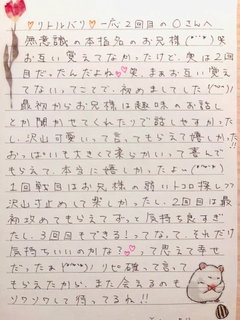 ♥リトルパリ♥一応2回目の〇さんへ
無意識の本指名のお兄様(*´`*)笑
お互い覚えてなかったけど、実は2回
目だったんだよね💕笑、まぁお互い覚え
てないってことで、初めましてした(^^)/
最初からお兄様は趣味のお話し
とか聞かせてくれたりで話しやすかった
し、沢山可愛いって言ってもらえて嬉しかった!!
おっぱいも大きくて柔らかいって喜んで
もらえて、本当に嬉しかったよー(^^)
1回戦目はお兄様の弱いトコロ探しつつ
沢山寸止めして楽しかったし、2回目は最
初攻めてもらえてずっと気持ち良すぎ
たし、3回目もできる!ってなって、それだけ
気持ちいいのかな?💕って思えて幸せ
だったぁ(^^)/リピ確って言って
もらえたから、また会えるのも
ソワソワして待ってるね!!